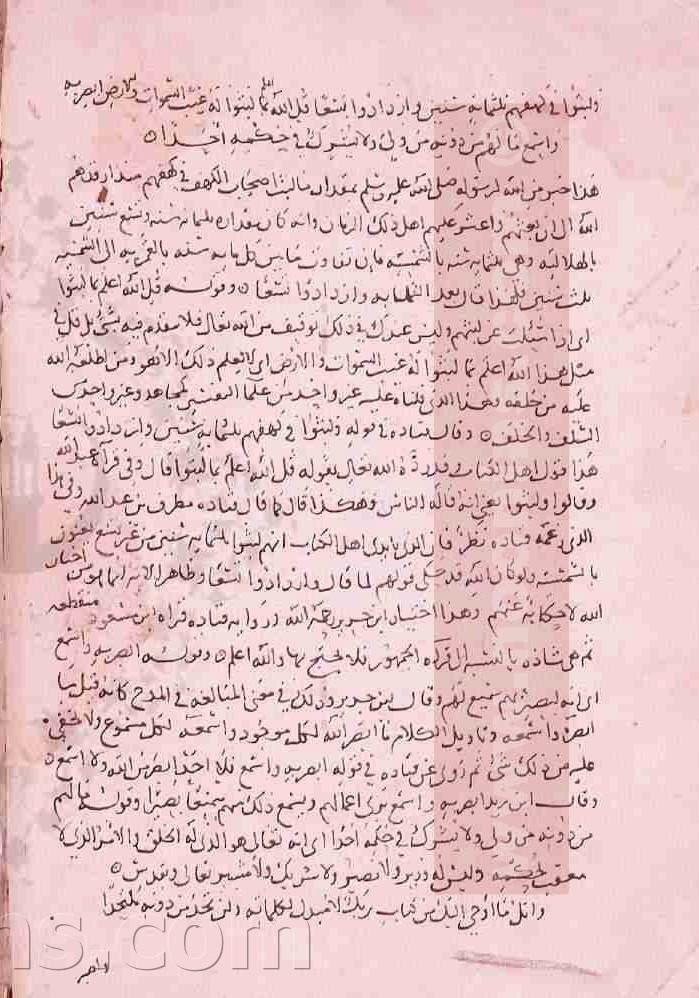 ولبثوا في كهفهم ثلثماية سنين وازدادوا تسعا قل الله اعلم بما لبثوا له غيب السموات والارض ابصر به
واسمع ما لهم من دونه من ولي ولا يشرك في حكمه احدا ه
هذا خبر من الله لرسوله صلى الله عليه وسلم بمقدار ما لبث اصحاب الكهف في كهفهم منذ ارقدهم
الله الى ان بعثهم واعثر عليهم اهل ذلك الزمان وانه كان مقداره ثلثماية سنه وتسع سنين
بالهلاليه وهي ثلثماية سنه بالشمسيه فان تفاوت ما بين كل مايه سنه بالقمريه الى الشمسيه
ثلث سنين فلهذا قال بعد الثلثمايه وازدادوا تسعا ه وقوله قل الله اعلم بما لبثوا
اي اذا سئلت عن لبثهم وليس عندك في ذلك توقيف من الله تعالى فلا تتقدم فيه بشي بل قل في
مثل هذا الله اعلم بما لبثوا له غيب السموات والارض اي لا يعلم ذلك الا هو ومن اطلعه الله
عليه من خلقه وهذا الذي قلناه عليه غير واحد من علما التفسير كمجاهد وغير واحد من
السلف والخلف ه وقال قتاده في قوله ولبثوا في كهفهم ثلثماية سنين وازدادوا تسعا
هذا قول اهل الكتاب وقد رده الله تعالى بقوله قل الله اعلم بما لبثوا قال وفي قراة عبد الله
وقالوا ولبثوا يعني انه قاله الناس وهكذا قال كما قال قتاده مطرف بن عبد الله وفي هذا
الذي زعمه قتاده نظر فان الذي بايدي اهل الكتاب انهم لبثوا ثلثمايه سنين من غير تسع يعنون
بالشمسيه ولو كان الله قد حكى قولهم لما قال وازدادوا تسعا وظاهر الايه انما هو من اخبار
الله لا حكاية عنهم وهذا اختيار ابن جرير رحمه الله ورواية قتاده قراة ابن مسعود منقطعه
ثم هي شاذه بالنسبه الى قراة الجمهور فلا يحتج بها والله اعلم ه وقوله ابصر به واسمع
اي انه لبصير بهم سميع لهم وقال بن جرير وذلك في معنى المبالغه في المدح كانه قيل ما
ابصره واسمعه وتاويل الكلام ما ابصر الله لكل موجود واسمعه لكل مسموع ولا يخفى
عليه من ذلك شي ثم روي عن قتاده في قوله ابصر به واسمع فلا احد ابصر من الله ولا اسمع ه
وقال ابن زيد ابصر به واسمع يرى اعمالهم ويسمع ذلك منهم سميعا بصيرا وقوله ما لهم
من دونه من ولي ولا يشرك في حكمه احدا اي انه تعالى هو الذي له الخلق والامر الذي لا
معقب لحكمه وليس له وزير ولا نصير ولا شريك ولا مشير تعالى وتقدس ه
واتل ما اوحي اليك من كتاب ربك لا مبدل لكلماته ولن تجد من دونه ملتحدا
واصبر
ns.com